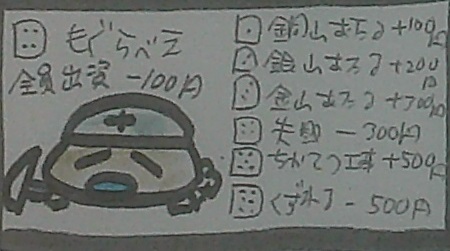 ⚃ もぐらべえ
全員出資 -100円
⚀ 銅山ほる +100円
⚁ 銀山ほる +200円
⚂ 金山ほる +300円
⚃ 失敗 -300円
⚄ ちかてつ工事 +500円
⚅ くずれる -500円